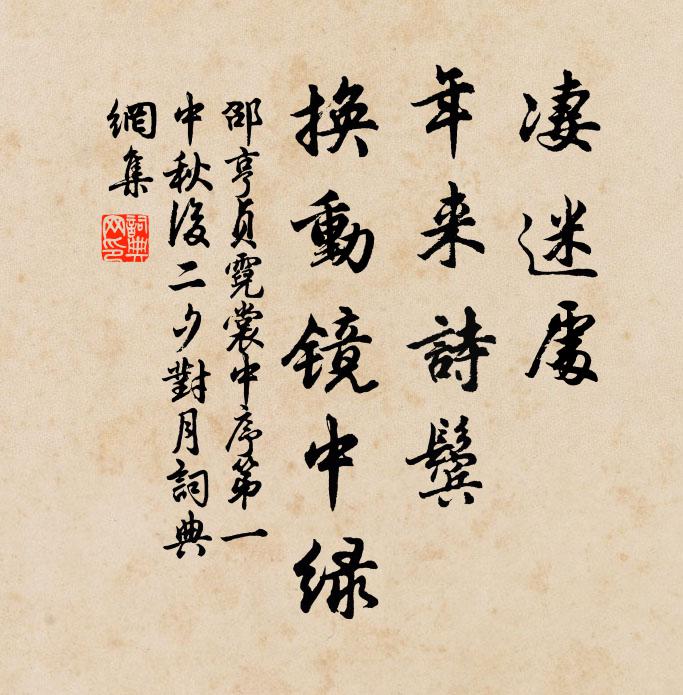 凄迷處
年来詩鬢
换動鏡中緑
邵亨貞霓裳中序第一
中秋後二夕對月詞典
網集
詞典網印